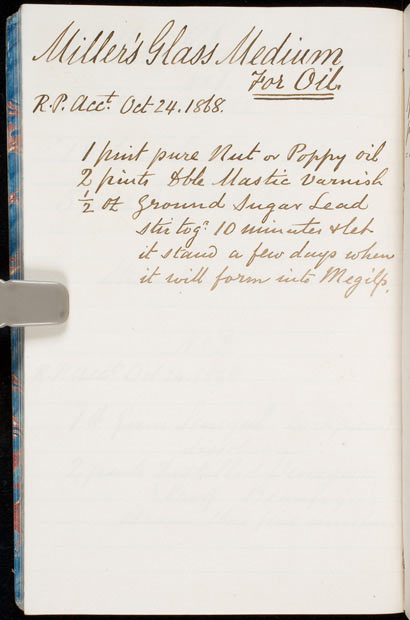 Miller's Glass Medium
For Oil.
R.P. Acct. Oct 24. 1868.
1 pint pure Nut or Poppy oil
2 pints dble Mastic Varnish
½ oz Ground Sugar Lead
stir togr. 10 minutes & let
it stand a few days when
it will form into Megilp.